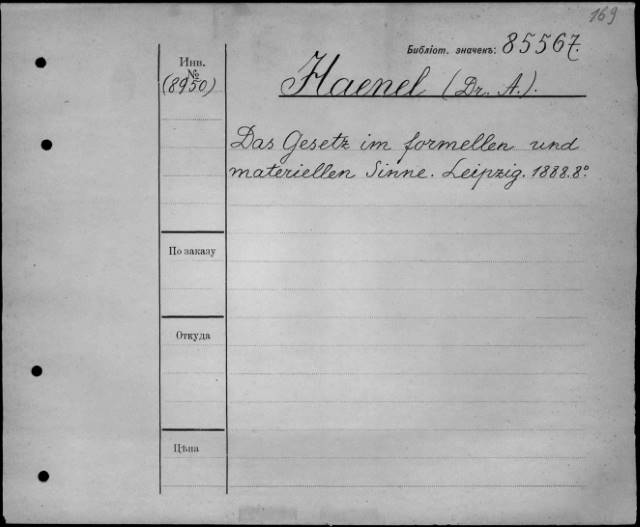 169
Библіот. значекъ: 85567.
Инв.
№
(8950)
Haenel (Dr. A.).
Das Gesetz im formellen und
materiellen Sinne. Leipzig. 1888. 8º.
По заказу
Откуда
Цѣна